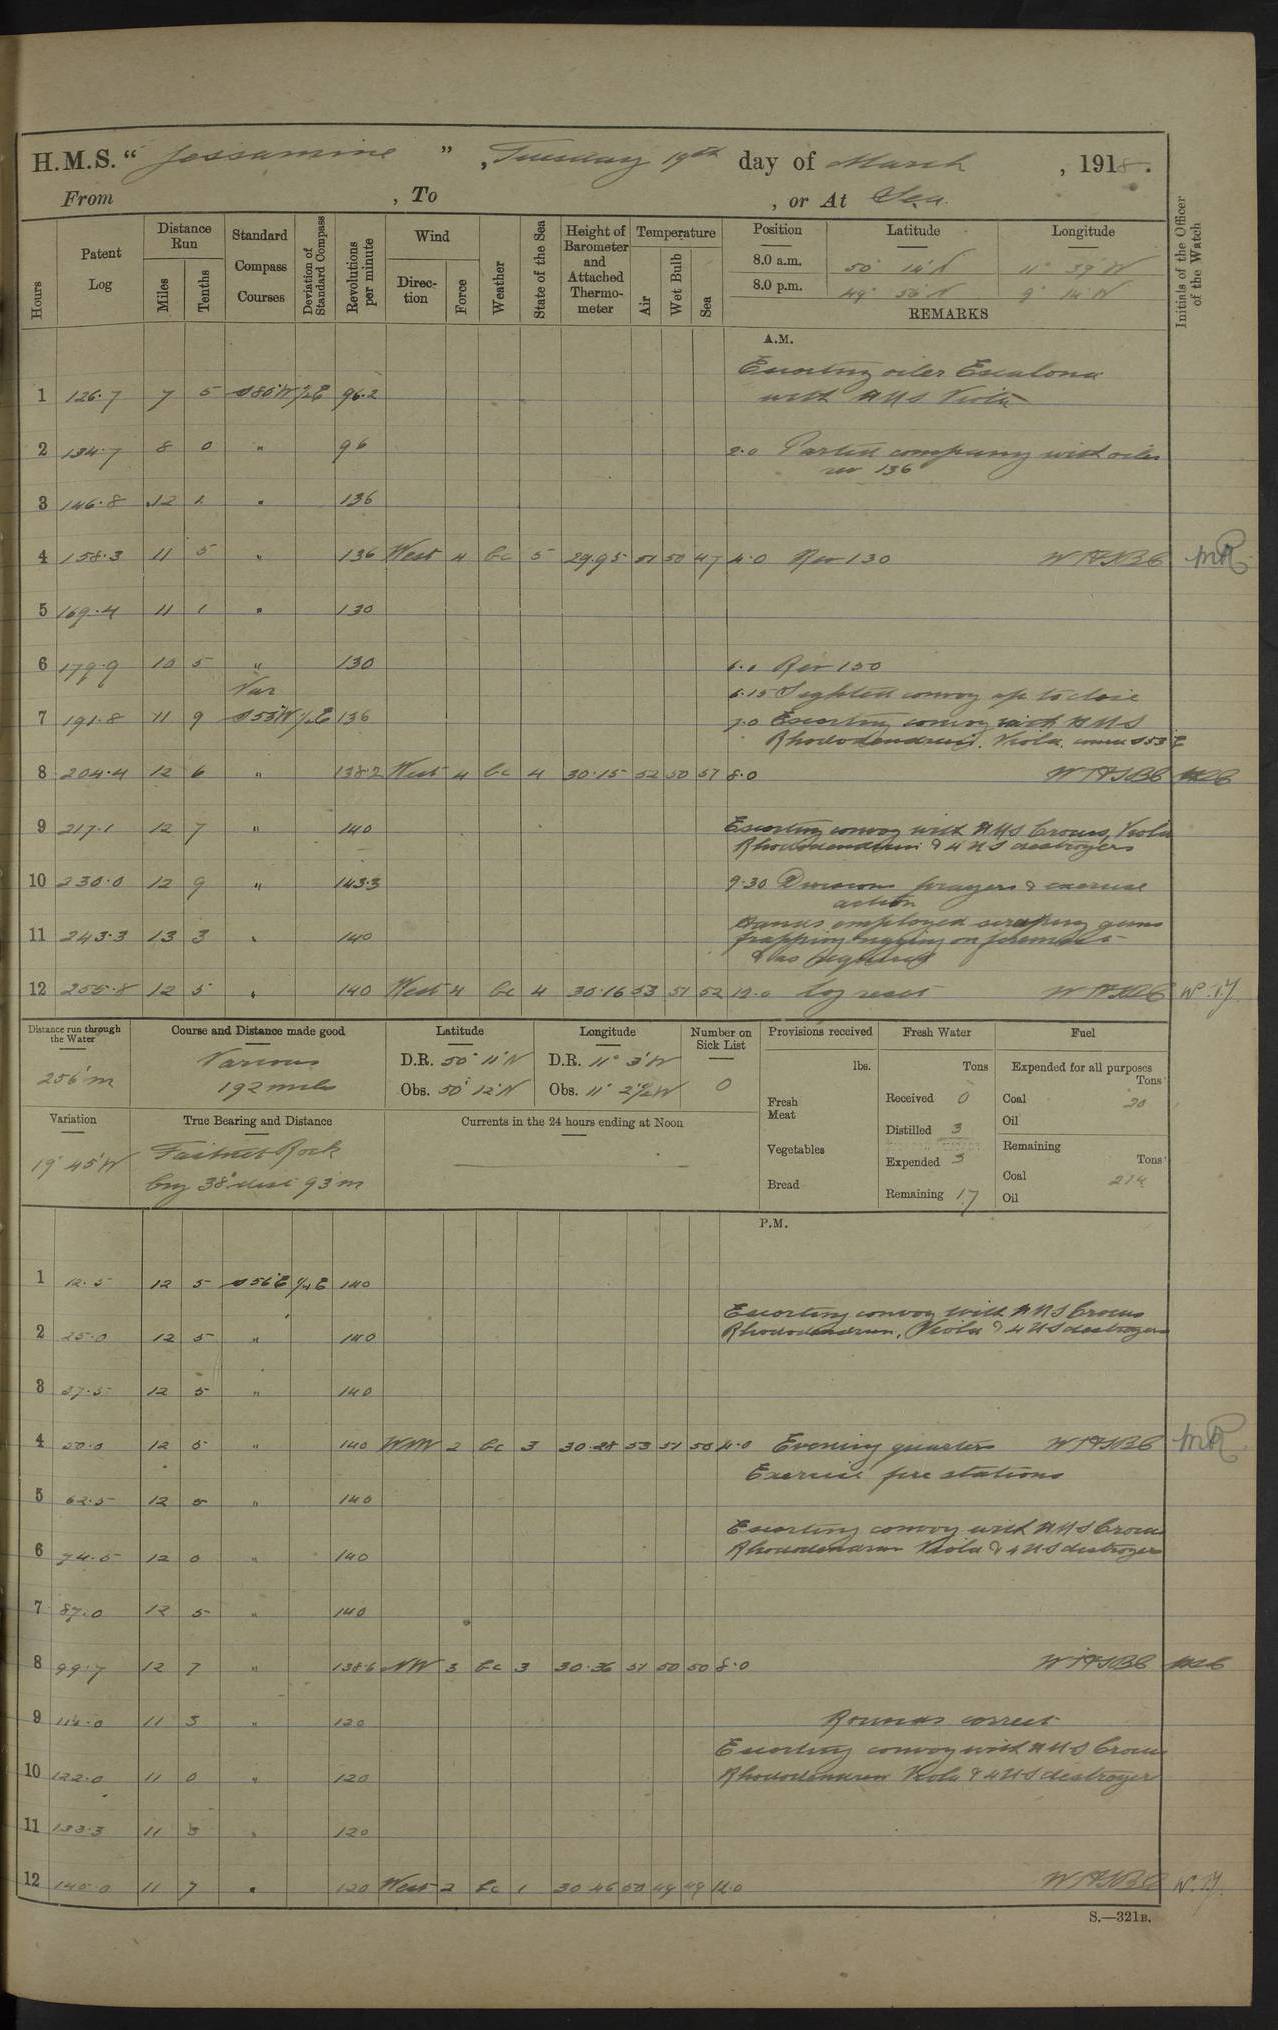 H.M.S. "Jessamine", Tuesday 19th day of March, 1918.
From , To , or At Sea.
Hours
Patent Log
Distance Run
Miles
Tenths
Standard Compass Courses
Deviation of Standard Compass
Revolutions per minute
Wind
Direction
Force
Weather
State of the Sea
Height of Barometer and Attached Thermometer
Temperature
Air
Wet Bulb
Sea
Position Latitude Longitude
8.0 a.m. 50° 14' N 11° 39' W
8.0 p.m. 49° 56' N 9° 14' W
REMARKS
Initials of the Officer of the Watch
A.M.
Escorting oiler Escalona
1 126.7 7 5 S80°W ½E 96.2 with HMS Viola
2 134.7 8 0 " 96 2.0 Parted company with oiler
rev 136
3 146.8 12 1 " 136
4 158.3 11 5 " 136 West 4 bc 5 29.95 51 50 47 4.0 Rev 130
5 169.4 11 1 " 130
6 179.9 10 5 " 130
Var 6.15 Sighted convoy up to close
7 191.8 11 9 136 7.0 Escorting convoy with HMS
Rhododendron. Viola. course S53°E
8 204.4 12 6 " 138.2 West 4 bc 4 30.15 52 50 51 8.0
9 217.1 12 7 " 140 Escorting convoy with HMS Crocus, Viola
Rhododendron & 4 US destroyers
10 230.0 12 9 " 143.3 9.30 Divisions prayers & exercise
action
Hands employed scraping guns
11 243.3 13 3 " 140
& as requisite
12 255.8 12 5 " 140 West 4 bc 4 30.16 53 51 52 12.0 Log reset
Distance run through the Water
256' m
Course and Distance made good
Various
192 miles
Latitude
D.R. 50° 11' N
Obs. 50° 12' N
Longitude
D.R. 11° 3' W
Obs. 11° 2½' W
Number on Sick List
0
Variation
19° 45' W
True Bearing and Distance
Fastnet Rock
93 m
Currents in the 24 hours ending at Noon
Provisions received
lbs.
Fresh Meat
Vegetables
Bread
Fresh Water
Tons
Received 0
Distilled 3
Expended 3
Remaining 17
Fuel
Expended for all purposes
Tons
Coal 20
Oil
Remaining
Tons
Coal 214
Oil
P.M.
1 12.5 12 5 S56°E ¼E 140
Escorting convoy with HMS Crocus
2 25.0 12 5 " 140 Rhododendron, Viola & 4 US destroyers
3 37.5 12 5 " 140
4 50.0 12 5 " 140 WNW 2 bc 3 30.28 53 51 50 4.0 Evening quarters
Exercise fire stations
5 62.5 12 5 " 140
Escorting convoy with HMS Crocus
6 74.5 12 0 " 140 Rhododendron Viola & 4 US destroyers
7 87.0 12 5 " 140
8 99.7 12 7 " 138.6 NW 3 bc 3 30.36 51 50 50 8.0
9 11 3 " 120 Rounds correct
Escorting convoy with HMS Crocus
10 122.0 11 0 " 120 Rhododendron Viola & 4 US destroyers
11 133.3 11 3 " 120
12 145.0 11 7 " 120 West 2 bc 1 30.46 50 49 49 12.0
S.—321B.